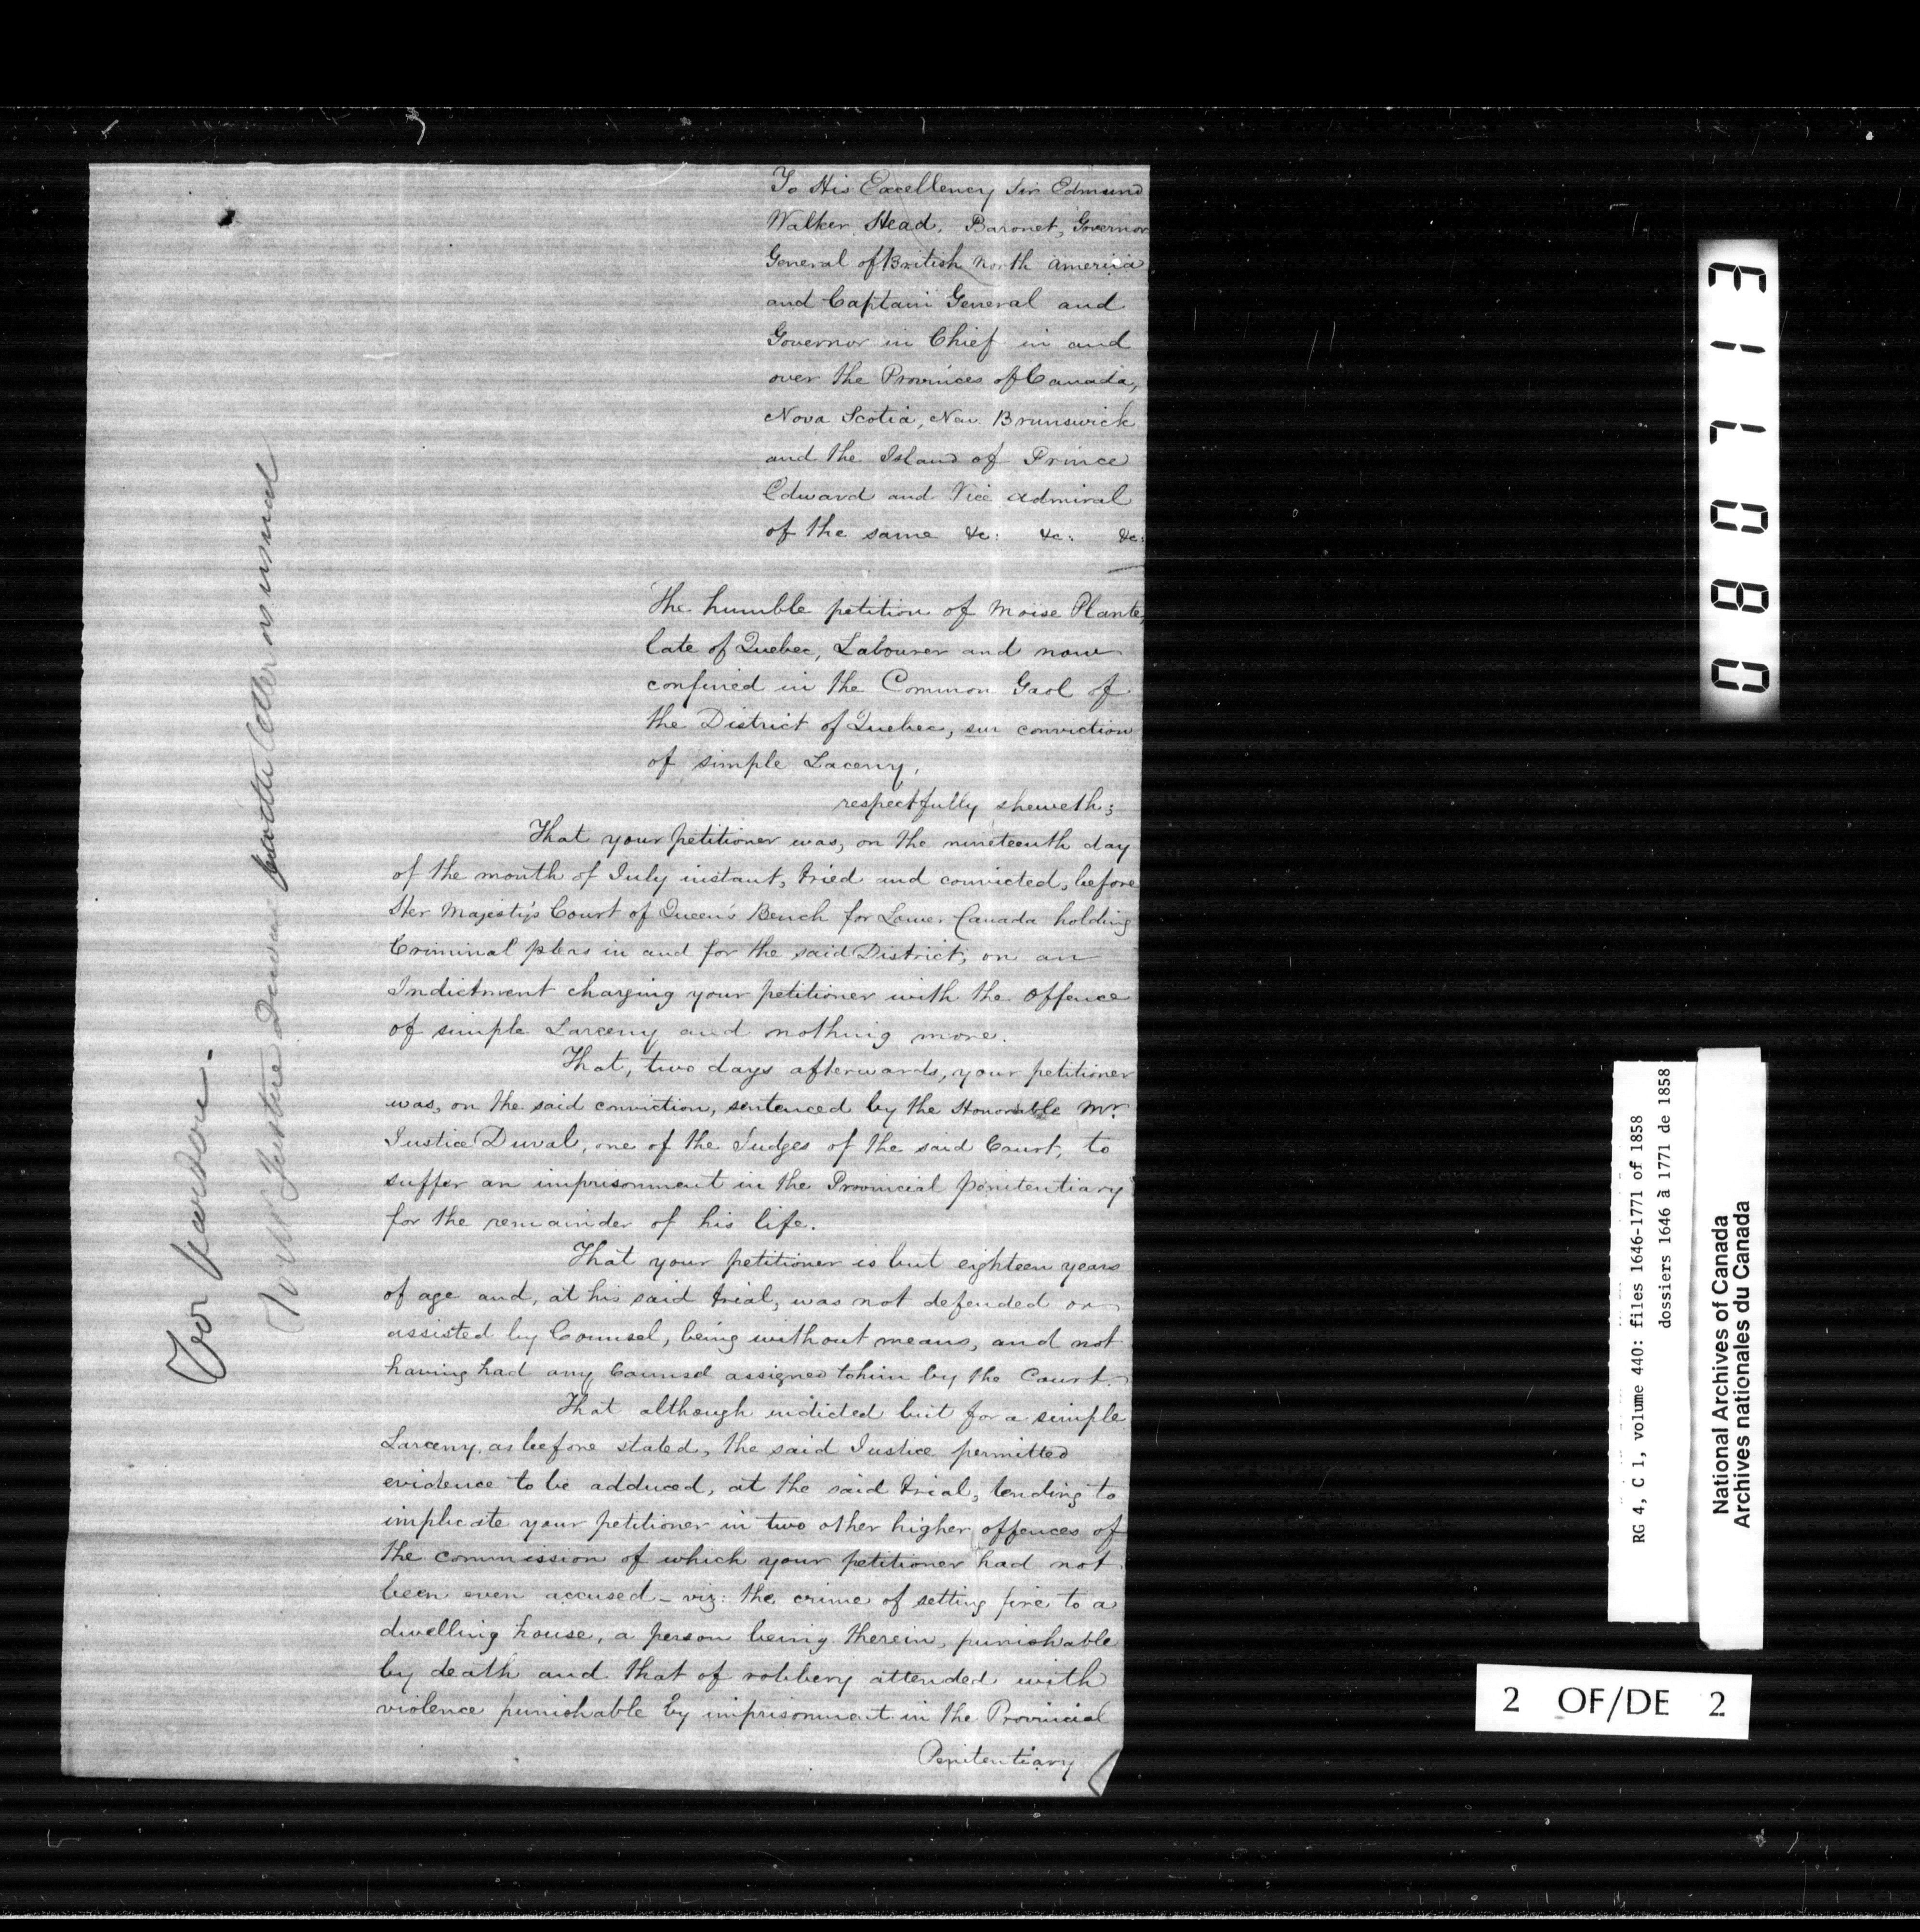 To His Excellency Sir Edmund
Walker Head, Baronet, Governor
General of British North America
and Captain General and
Governor in Chief in and
over the Provinces of Canada,
Nova Scotia, New Brunswick
and the Island of Prince
Edward and Vice Admiral
of the same &c: &c: &c:
The humble petition of Moise Plante,
late of Quebec, Labourer and now
confined in the Common Gaol of
the District of Quebec, sur conviction
of simple Laceny,
respectfully sheweth;
That your petitioner was, on the nineteenth day
of the month of July instant, tried and convicted, before
Her Majesty's Court of Queen's Bench for Lower Canada holding
Criminal pleas in and for the said District, on an
Indictment charging your petitioner with the offence
of simple Larceny and nothing more.
That, two days afterwards, your petitioner
was, on the said conviction, sentenced by the Honorable Mr
Justice Duval, one of the Judges of the said Court, to
suffer an imprisonment in the Provincial penitentiary
for the remainder of his life.
That your petitioner is but eighteen years
of age and, at his said trial, was not defended or
assisted by Counsel, being without means, and not
having had any Counsel assigned to him by the Court.
That although indicted but for a simple
Larceny, as before stated, the said Justice permitted
evidence to be adduced, at the said trial, tending to
implicate your petitioner in two other higher offences of
the commission of which your petitioner had not
been even accused - viz: the crime of setting fire to a
dwelling house, a person being therein, punishable
by death and that of robbery attended with
violence punishable by imprisonment in the Provincial
Penitentiary
For pardon -
Mr Justice Duval letter as usual
080713
RG 4, C 1, volume 440: files 1646-1771 of 1858
dossiers 1646 à 1771 de 1858
National Archives of Canada
Archives nationales du Canada
2 OF/DE 2